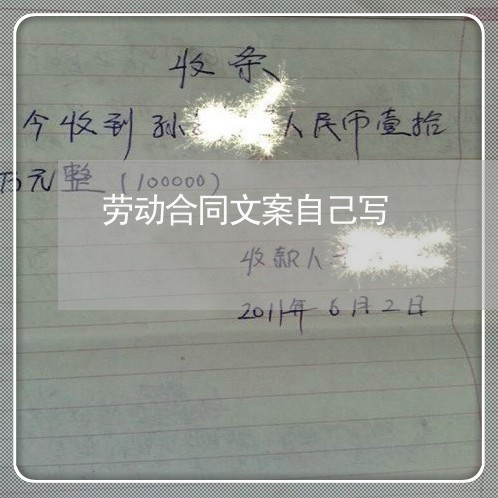 收条
今收到孙 人民币壹拾
万元整（100000）
劳动合同文案自己写
收款人
2011年6月2日